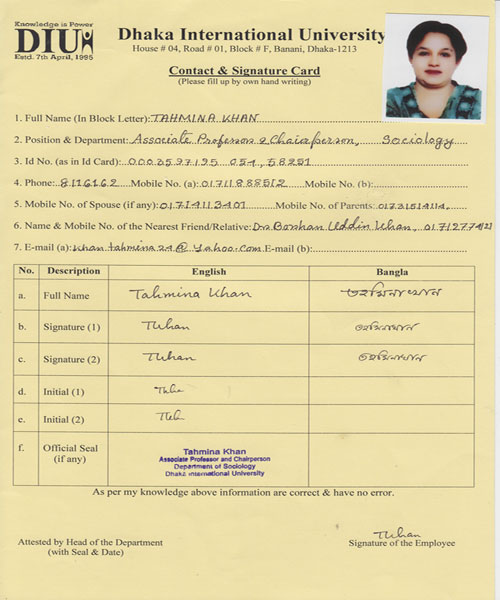 Knowledge is Power
DIU
Estd. 7th April, 1995
Dhaka International University
House # 04, Road # 01, Block # F, Banani, Dhaka-1213
Contact & Signature Card
(Please fill up by own hand writing)
1. Full Name (In Block Letter): TAHMINA KHAN
2. Position & Department: Associate Professor & Chairperson, Sociology
3. Id No. (as in Id Card): 0003597195 054, 58251
4. Phone: 8116162 Mobile No. (a): 01711888512 Mobile No. (b):
5. Mobile No. of Spouse (if any): 01714113401 Mobile No. of Parents: 01731514114,
6. Name & Mobile No. of the Nearest Friend/Relative: Uddin Khan,
7. E-mail (a): khan tahmina24@yahoo.com E-mail (b):
No. Description English Bangla
a. Full Name Tahmina Khan তাহমিনা খান
b. Signature (1) TKhan তাহমিনা খান
c. Signature (2) TKhan তাহমিনা খান
d. Initial (1)
e. Initial (2)
f. Official Seal (if any)
Tahmina Khan
Associate Professor and Chairperson
Department of Sociology
Dhaka International University
As per my knowledge above information are correct & have no error.
TKhan
Attested by Head of the Department Signature of the Employee
(with Seal & Date)